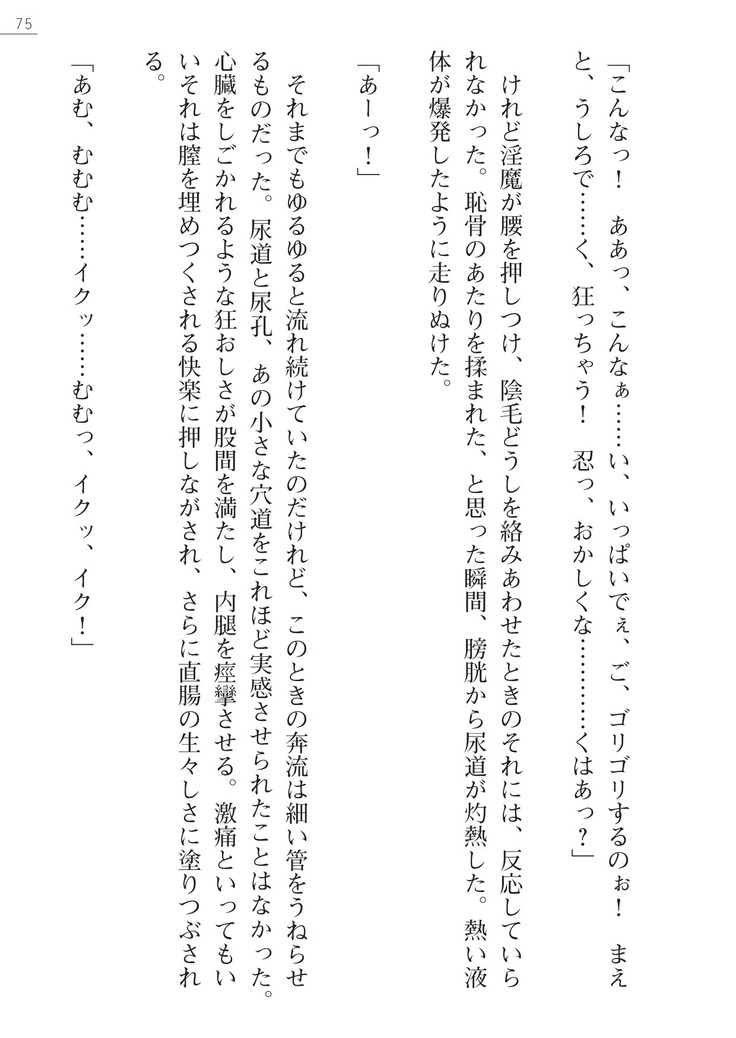 75
「こんなっ！　ああっ、こんなぁ……い、いっぱいでぇ、ご、ゴリゴリするのぉ！　まえ
と、うしろで……く、狂っちゃう！　忍っ、おかしくな…………くはあっ？」
けれど淫魔が腰を押しつけ、陰毛どうしを絡みあわせたときのそれには、反応していら
れなかった。恥骨のあたりを揉まれた、と思った瞬間、膀胱から尿道が灼熱した。熱い液
体が爆発したように走りぬけた。
「あーっ！」
それまでもゆるゆると流れ続けていたのだけれど、このときの奔流は細い管をうねらせ
るものだった。尿道と尿孔、あの小さな穴道をこれほど実感させられたことはなかった。
心臓をしごかれるような狂おしさが股間を満たし、内腿を痙攣させる。激痛といってもい
いそれは膣を埋めつくされる快楽に押しながされ、さらに直腸の生々しさに塗りつぶされ
る。
「あむ、むむむ……イクッ……むむっ、イクッ、イク！」